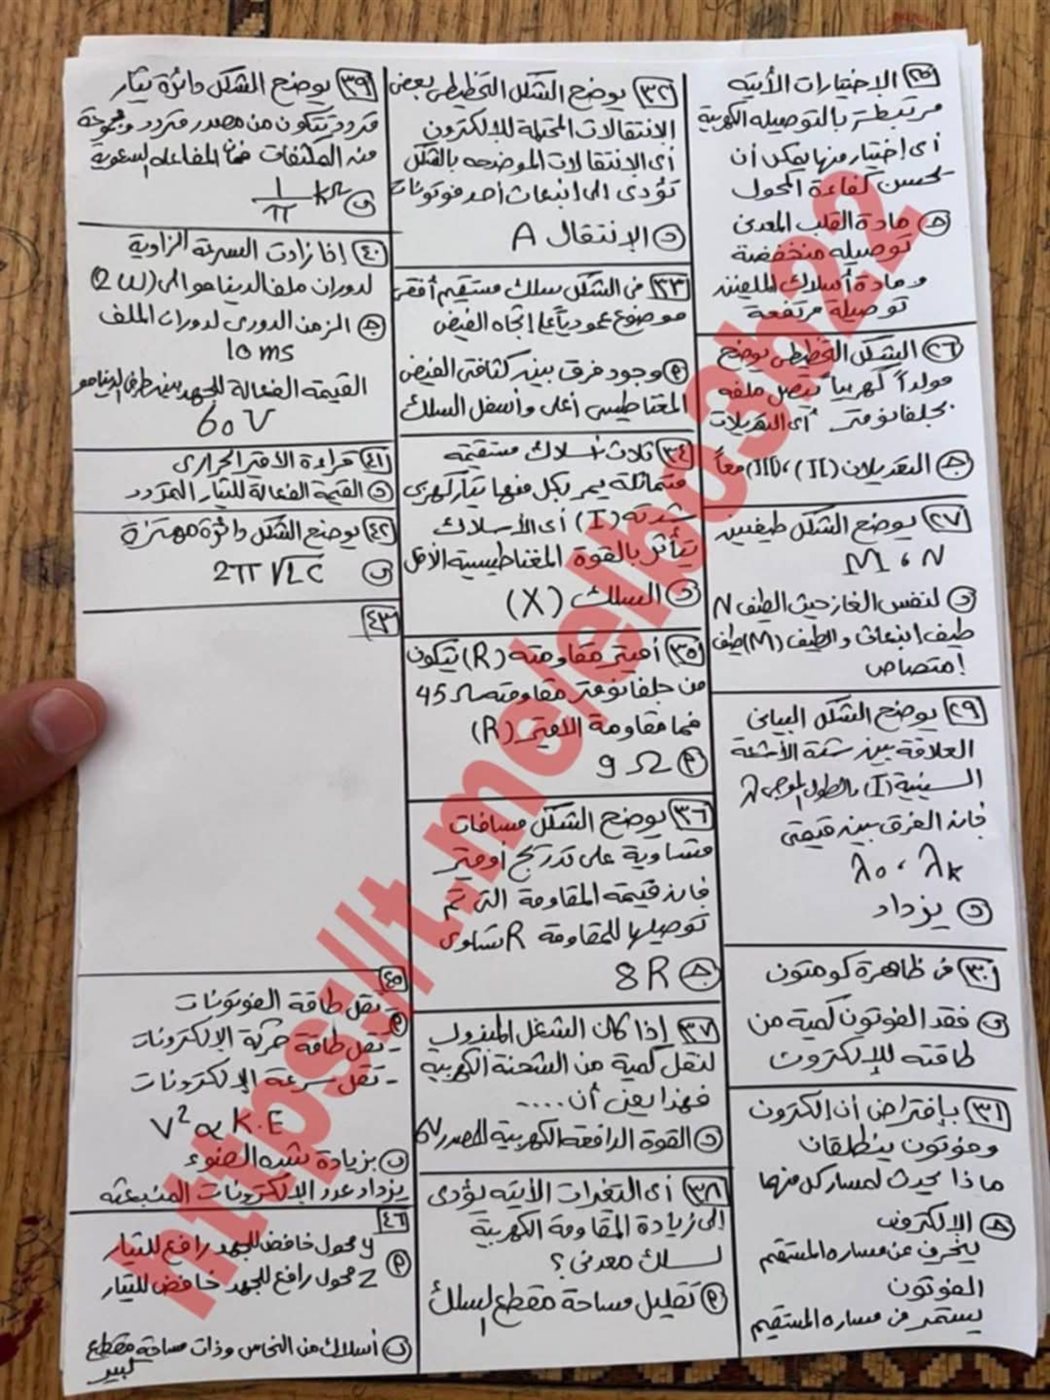 ٢٥ الإختيارات الأتية
مرتبطة بالتوصيله الكهربية
أى إختيار منها يمكن أن
يحسن كفاءة المحول
مادة القلب المعدنى
توصيله منخفضة
ومادة أسلاك الملفين
توصيلة مرتفعة
٢٦ الشكل التخطيطى يوضح
مولداً كهربياً يتصل ملفه
بجلفانومتر أى التعديلات
ج التعديلان (II)، (III) معاً
٢٧ يوضح الشكل طيفين
M ، N
د لنفس الغاز حيث الطيف N
طيف انبعاث والطيف (M) طيف
إمتصاص
٢٩ يوضح الشكل البيانى
العلاقة بين شدة الأشعة
السينية (I) والطول الموجى λ
فإن الفرق بين قيمتى
λo ، λK
د يزداد
٣٠ فى ظاهرة كومتون
ب فقد الفوتون كمية من
طاقته للإلكترون
٣١ بإفتراض أن إلكترون
وفوتون ينطلقان
ماذا يحدث لمسار كل منهما
الإلكترون
ينحرف عن مساره المستقيم
الفوتون
يستمر فى مساره المستقيم
٣٢ يوضح الشكل التخطيطى بعض
الانتقالات المحتملة للإلكترون
أى الإنتقالات الموضحه بالشكل
تؤدى الى انبعاث أحد فوتونات
د الإنتقال A
٣٣ فى الشكل سلك مستقيم أفقى
موضوع عمودياً على إتجاه الفيض
وجود فرق بين كثافتى الفيض
المغناطيسى أعلى وأسفل السلك
٣٤ ثلاث أسلاك مستقيمة
متماثلة يمر بكل منها تيار كهربى
شدته (I) أى الأسلاك
يتأثر بالقوة المغناطيسية الأقل
د السلك (X)
٣٥ أميتر مقاومته (R) يتكون
من جلفانومتر مقاومته 45 Ω
فما مقاومة الاميتر (R)
9 Ω
٣٦ يوضح الشكل مسافات
متساوية على تدريج أوميتر
فإن قيمة المقاومة التى تم
توصيلها للمقاومة R تساوى
8 R
٣٧ إذا كان الشغل المبذول
لنقل كمية من الشحنة الكهربية
فهذا يعنى أن ....
د القوة الدافعة الكهربية للمصدر 6V
٣٨ أى التغيرات الأتيه يؤدى
إلى زيادة المقاومة الكهربية
لسلك معدنى؟
تقليل مساحة مقطع السلك
٣٩ يوضح الشكل دائرة تيار
متردد تتكون من مصدر متردد ومجموعة
من المكثفات فإن المفاعله السعوية
ب 1/π kΩ
٤٠ إذا زادت السرعة الزاوية
لدوران ملف الدينامو الى (2 ω)
الزمن الدورى لدوران الملف
10 ms
القيمة الفعالة للجهد بين طرفى الدينامو
60 V
٤١ قراءة الاميتر الحرارى
د القيمة الفعالة للتيار المتردد
٤٢ يوضح الشكل دائرة مهتزة
ب 2π √LC
٤٣
٤٥
- تقل طاقة الفوتونات
- تقل طاقة حركة الإلكترونات
- تقل سرعة الإلكترونات
V² ∝ K.E
ب بزيادة شدة الضوء
يزداد عدد الإلكترونات المنبعثه
٤٦
y محول خافض للجهد رافع للتيار
Z محول رافع للجهد خافض للتيار
أسلاك من النحاس وذات مساحة مقطع
كبير
https://t.me/elbo3b22